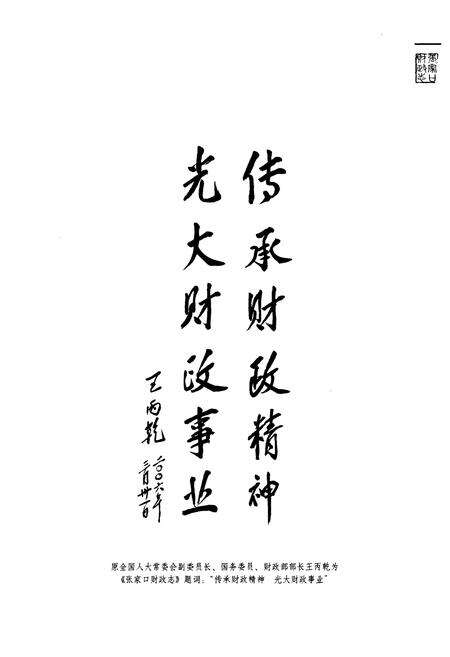 张家口
财政志
传承财政精神
光大财政事业
王丙乾
二〇〇六年
三月卅一日
原全国人大常委会副委员长、国务委员、财政部部长王丙乾为
《张家口财政志》题词：“传承财政精神　光大财政事业”